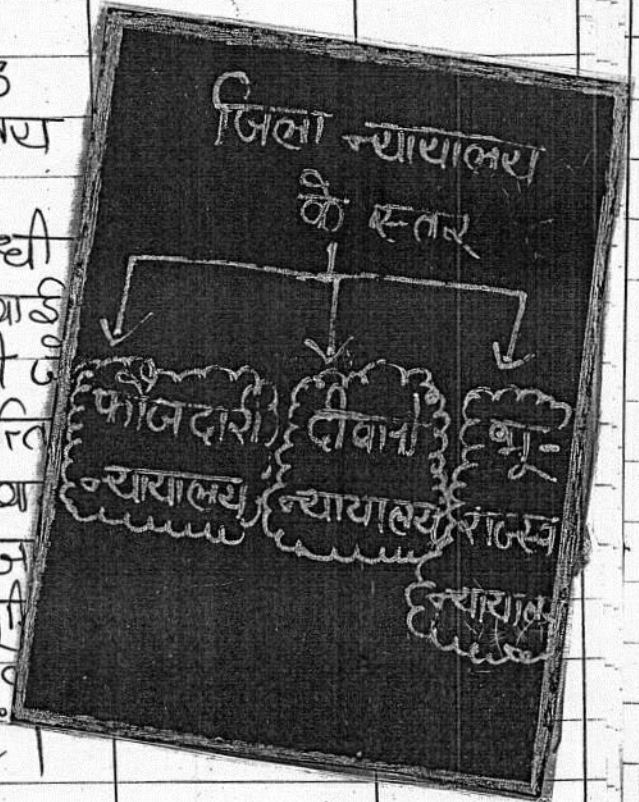 जिला न्यायालय
के स्तर
फौजदारी
न्यायालय
दीवानी
न्यायालय
भू-
राजस्व